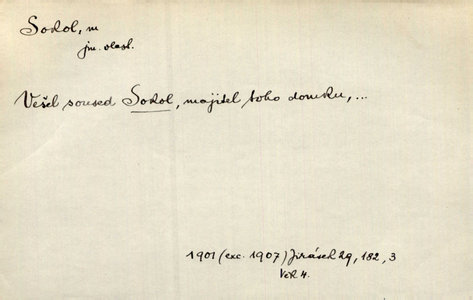 Sokol, m
jm. vlast.
Vešel soused Sokol, majitel toho domku, ...
1901 (exc. 1907) Jirásek 29, 182, 3